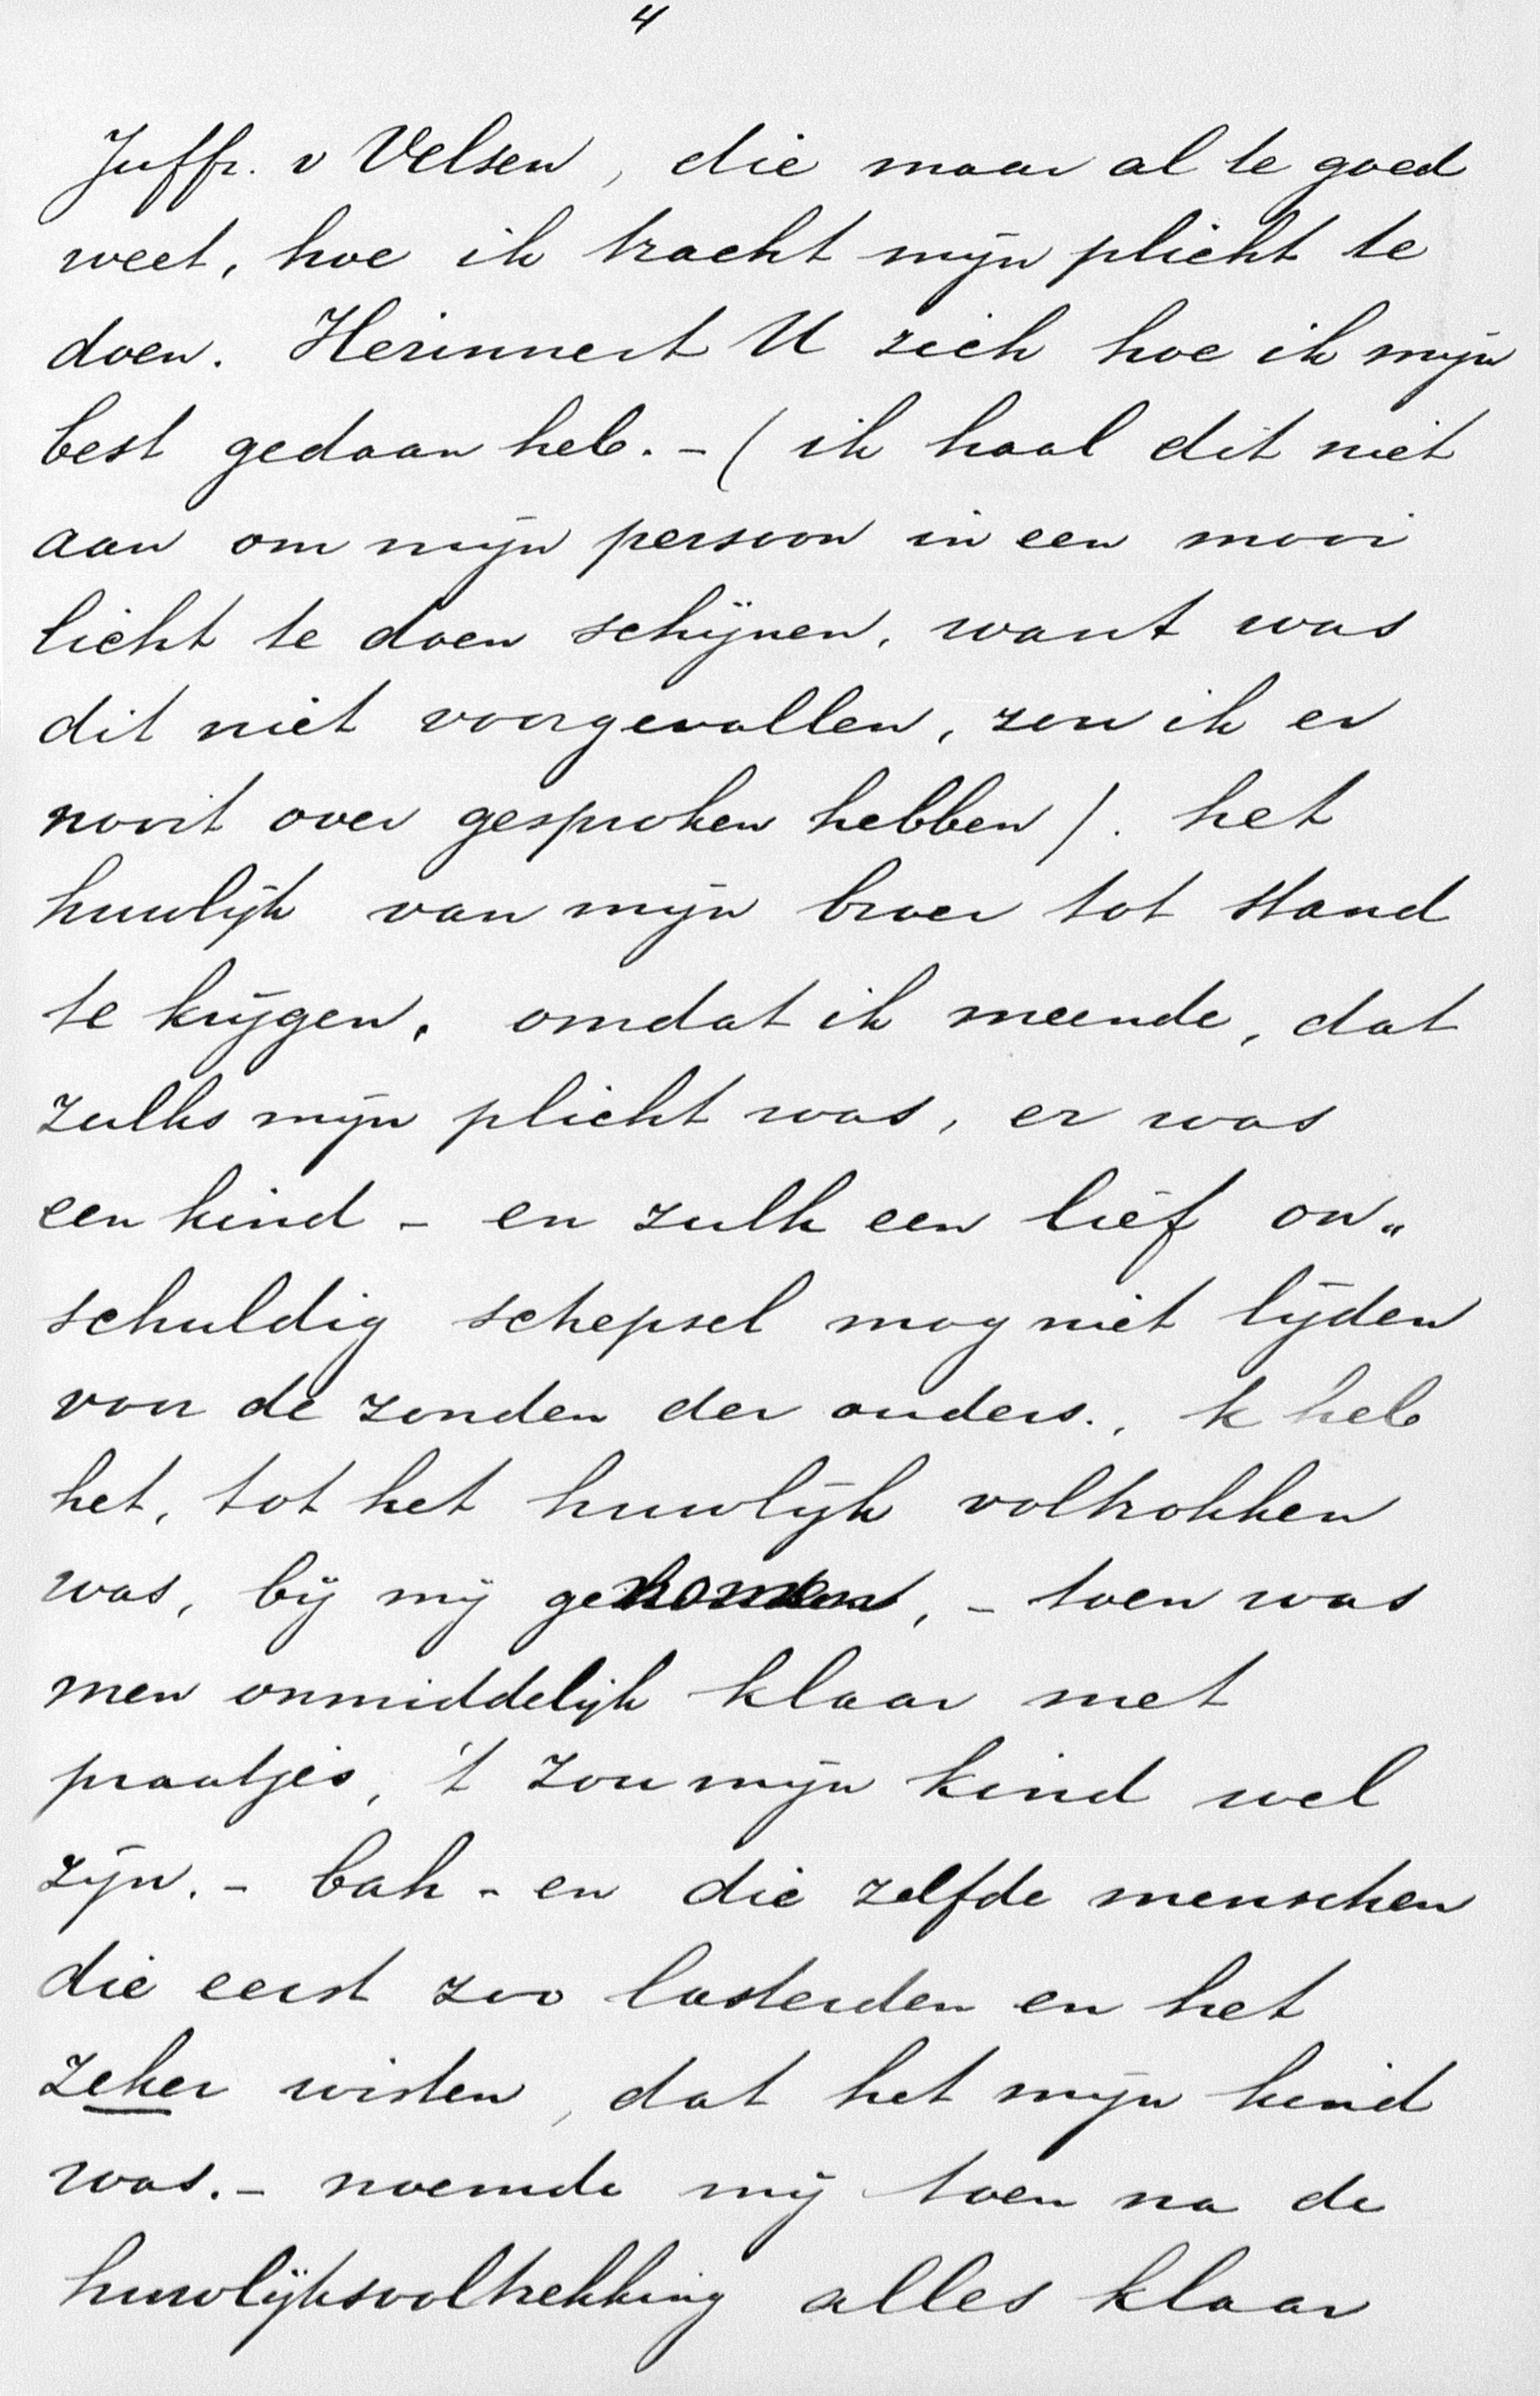 4
Juffr. v Velsen, die maar al te goed
weet, hoe ik tracht mijn plicht te
doen. Herinnert U zich hoe ik mijn
best gedaan heb. - ( ik haal dit niet
aan om mijn persoon in een mooi
licht te doen schijnen, want was
dit niet voorgevallen, zou ik er
nooit over gesproken hebben ). het
huwlijk van mijn broer tot stand
te krijgen, omdat ik meende, dat
zulks mijn plicht was, er was
een kind - en zulk een lief on„
schuldig schepsel mag niet lijden
voor de zonden der ouders., k heb
het, tot het huwlijk voltrokken
was, bij mij genomen, - toen was
men onmiddelijk klaar met
praatjes, 't zou mijn kind wel
zijn. - bah - en die zelfde menschen
die eerst zoo lasterden en het
zeker wisten, dat het mijn kind
was. - noemde mij toen na de
huwlijksvoltrekking alles klaar